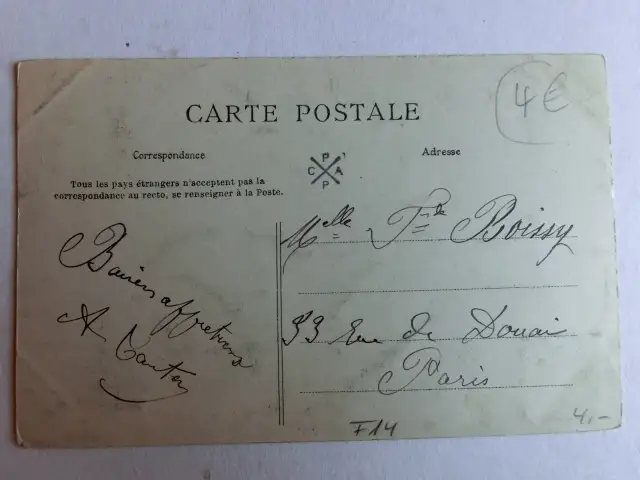 CARTE POSTALE
4€
Correspondance
Adresse
P
C A
P
Tous les pays étrangers n'acceptent pas la
correspondance au recto, se renseigner à la Poste.
Melle Boissy
33 Rue de Douai
Paris
Baisers affectueux
A
F14
4,-